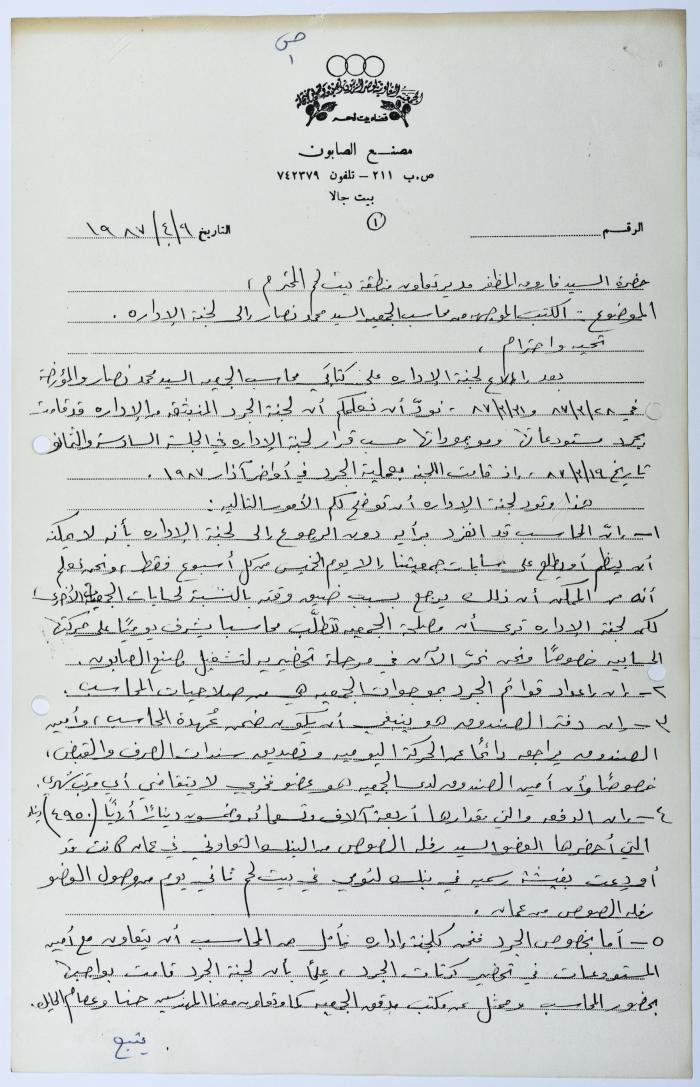 ص
١
قضاء بيت لحم
مصنع الصابون
ص.ب ٢١١ - تلفون ٧٤٢٣٧٩
بيت جالا
١
الرقم
التاريخ ٩/٤/١٩٨٧
حضرة السيد فاروق المظفر مدير تعاون منطقة بيت لحم المحترم ،
الموضوع :- الكتب الموجهه من محاسب الجمعيه السيد محمد نصار إلى لجنة الإداره .
تحيه واحترام ،
بعد إطلاع لجنة الإداره على كتابي محاسب الجمعيه السيد محمد نصار والمؤرخة
في ٨٧/٢/٢٨ و ٨٧/٣/٣١ . نودّ أن نعلمكم أن لجنة الجرد المنبثقه من الإداره قد قامت
بجرد مستودعاتها وموجوداتها حسب قرار لجنة الإداره في الجلسة السادسة والثمانو
تاريخ ٨٧/٣/١٩ . إذ قامت اللجنه بعملية الجرد في أواخر آذار ١٩٨٧ .
هذا وتود لجنة الإداره أن توضح لكم الأمور التاليه :
١- إنّ المحاسب قد انفرد برأيه دون الرجوع إلى لجنة الإداره بأنه لا يمكنه
أن ينظم أو يطلع على حسابات جمعيتنا إلا يوم الخميس من كل أسبوع فقط ، ونحن نعلم
أنه من الممكن أن ذلك يرجع بسبب ضيق وقته بالنسبة لحسابات الجمعيات الأخرى ،
لكن لجنة الإداره ترى أن مصلحة الجمعيه تتطلّب محاسبا يشرف يوميًا على حركتها
الحسابيه خصوصًا ونحن نمرّ الآن في مرحلة تحضيريه لتشغيل مصنع الصابون .
٢- إن إعداد قوائم الجرد بموجودات الجمعيه هي من صلاحيات المحاسب .
٣- إن دفتر الصندوق هو ينبغي أن يكون ضمن عُهدة المحاسب ، وأمين
الصندوق يراجعه دائمًا عن الحركة اليوميه وتصديق سندات الصرف والقبض ،
خصوصًا وأن أمين الصندوق لدى الجمعيه هو عضو فخري لا يتقاضى أي مرتب شهري .
٤- إن الدفعه والتي مقدارها أربعة آلاف وتسعمائه وخمسون دينارًا أردنيًا (٤٩٥٠) دينار
التي أحضرها العضو السيد رفله الصوص من البنك التعاوني في عمان كانت قد
أودعت بفيشة رسميه في بنك لئومي في بيت لحم ثاني يوم من وصول العضو
رفله الصوص من عمان .
٥- أما بخصوص الجرد فنحن كلجنة إداره نأمل من المحاسب أن يتعاون مع أمين
المستودعات في تحضير كرتات الجرد ، علمًا بأن لجنة الجرد قامت بواجبها
بحضور المحاسب وممثل عن مكتب مدقق الجمعيه كما وتعاون معنا المهندسين حنا وعصام
يتبع